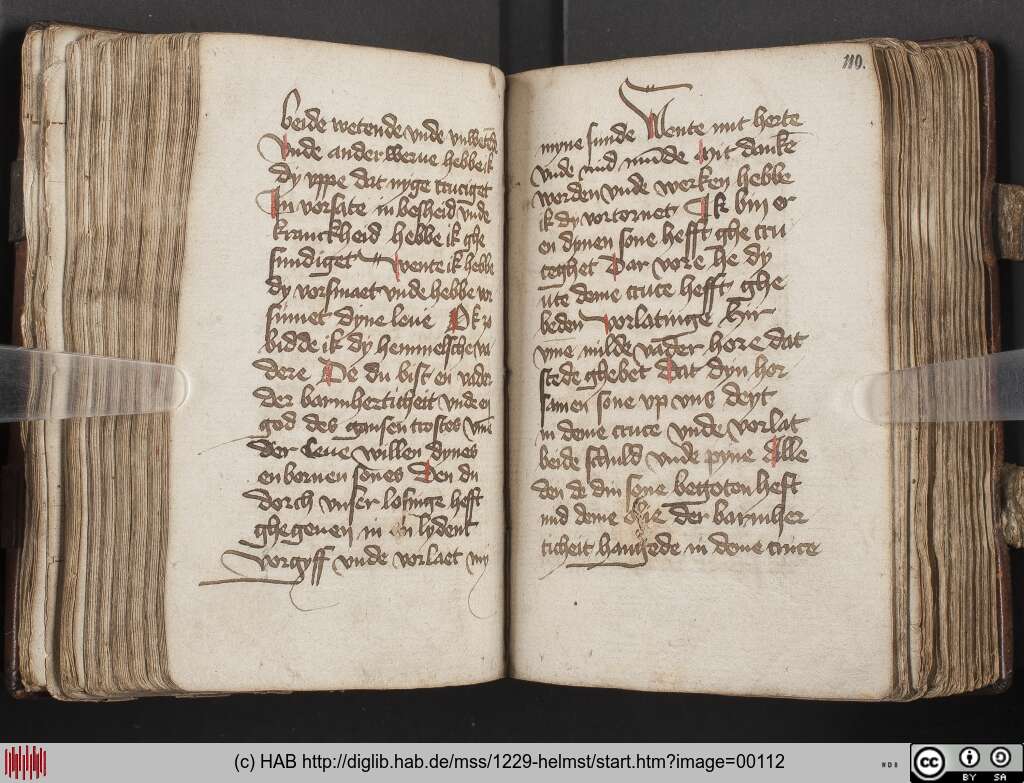 beide wetende vnde vnwetēde
Unde anderwerue hebbe ik
dy vppe dat nyge cruciget
In vorsate in besheid vnde
kranckheid hebbe ik ghe
sundiget Wente ik hebbe
dy vorsmaet vnde hebbe vor
sumet dyne leue Ok
bidde ik dy hemmelsche va
dere De du bist en vader
der barmherticheit vnde en
god des gansen trostes vmē
der Leue willen dynes
enbornen sones Den du
dorch vnser losinge hefft
ghegeuen in en lydent
vorgyff vnde vorlaet my
110.
myne sunde Wente mit herte
vnde mid mūde mit dankē
worden vnde werken hebbe
ik dy vortornet Ik bin er
en dynen sone hefft ghe cru
ceghet Dar vore he dy
ute deme cruce hefft ghe
beden vorlatinge Hir
vme milde vader hore dat
stede ghebet Dat dyn hor
samen sone vp vns deyt
in deme cruce vnde vorlat
beide schuld vnde pyne Alle
den de din sone begoten heft
mid deme olie der barmher
ticheit hangede in deme cruce
(c) HAB http://diglib.hab.de/mss/1229-helmst/start.htm?image=00112
WDB
cc BY SA